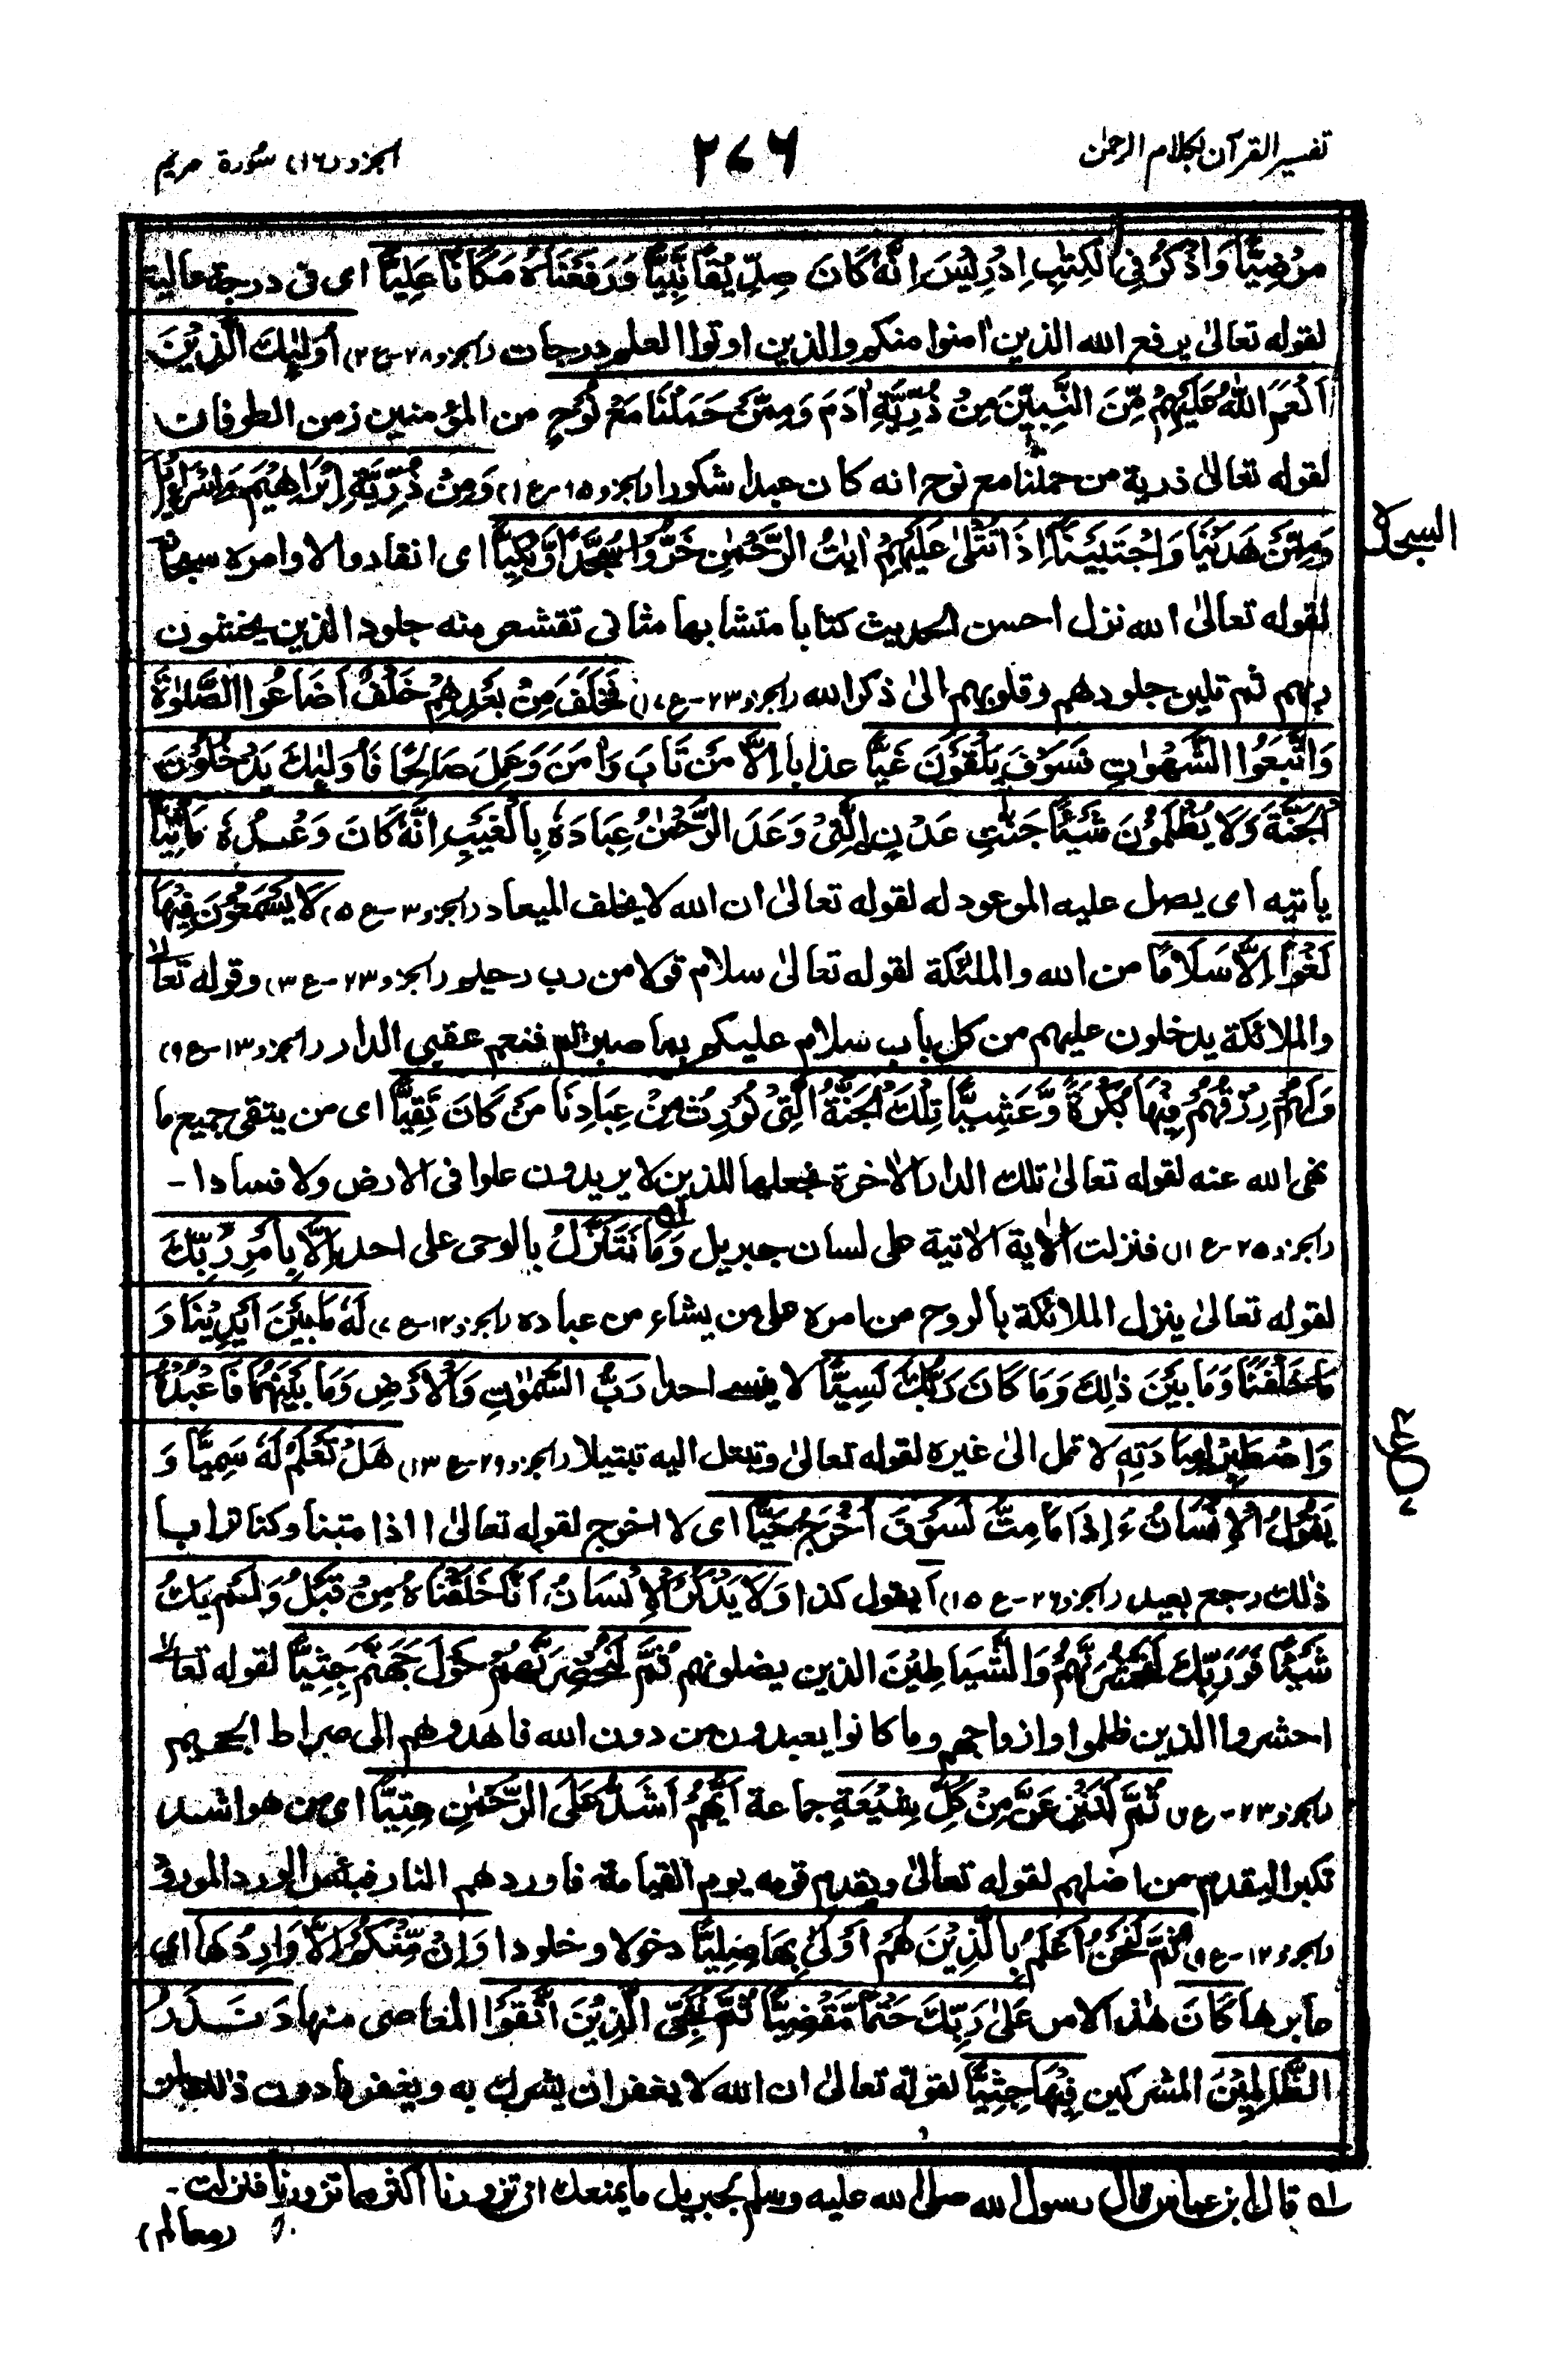 تفسير القرآن بكلام الرحمٰن
٢٧٦
الجزو (١٦) سُورة مريم
مَرْضِيًّا وَاذْكُرْ فِي الْكِتٰبِ اِدْرِيْسَ اِنَّهٗ كَانَ صِدِّيْقًا نَّبِيًّا وَرَفَعْنَاهُ مَكَانًا عَلِيًّا اى فى درجة عالية
لقوله تعالىٰ يرفع الله الذين اٰمنوا منكم والذين اوتوا العلم درجات (الجزو ٢٨-ع ٢) اُولٰئِكَ الَّذِيْنَ
اَنْعَمَ اللهُ عَلَيْهِمْ مِّنَ النَّبِيّٖنَ مِنْ ذُرِّيَّةِ اٰدَمَ وَمِمَّنْ حَمَلْنَا مَعَ نُوْحٍ من المؤمنين زمن الطوفان
لقوله تعالىٰ ذرية من حملنا مع نوح انه كان عبدا شكورا (الجزو ١٥-ع ١) وَمِنْ ذُرِّيَّةِ اِبْرَاهِيْمَ وَاِسْرَاءِيْلَ
وَمِمَّنْ هَدَيْنَا وَاجْتَبَيْنَا اِذَا تُتْلٰى عَلَيْهِمْ اٰيٰتُ الرَّحْمٰنِ خَرُّوْا سُجَّدًا وَّبُكِيًّا اى انقادوا لاوامره سبحانه
السجدة
لقوله تعالىٰ الله نزل احسن الحديث كتابا متشابها مثانى تقشعر منه جلود الذين يخشون
ربهم ثم تلين جلودهم وقلوبهم الىٰ ذكر الله (الجزو ٢٣-ع ١٧) فَخَلَفَ مِنْ بَعْدِهِمْ خَلْفٌ اَضَاعُوا الصَّلٰوةَ
وَاتَّبَعُوا الشَّهَوٰتِ فَسَوْفَ يَلْقَوْنَ غَيًّا عذابا اِلَّا مَنْ تَابَ وَاٰمَنَ وَعَمِلَ صَالِحًا فَاُولٰئِكَ يَدْخُلُوْنَ
الْجَنَّةَ وَلَا يُظْلَمُوْنَ شَيْئًا جَنّٰتِ عَدْنِ الَّتِيْ وَعَدَ الرَّحْمٰنُ عِبَادَهٗ بِالْغَيْبِ اِنَّهٗ كَانَ وَعْدُهٗ مَأْتِيًّا
يأتيه اى يصل عليه الموعود له لقوله تعالىٰ ان الله لا يخلف الميعاد (الجزو ٣-ع ٥) لَا يَسْمَعُوْنَ فِيْهَا
لَغْوًا اِلَّا سَلَامًا من الله والملئكة لقوله تعالىٰ سلام قولا من رب رحيم (الجزو ٢٣-ع ٣) وقوله تعالىٰ
والملائكة يدخلون عليهم من كل باب سلام عليكم بما صبرتم فنعم عقبى الدار (الجزو ١٣-ع ٩)
وَلَهُمْ رِزْقُهُمْ فِيْهَا بُكْرَةً وَّعَشِيًّا تِلْكَ الْجَنَّةُ الَّتِيْ نُوْرِثُ مِنْ عِبَادِنَا مَنْ كَانَ تَقِيًّا اى من يتقى جميع ما
نهى الله عنه لقوله تعالىٰ تلك الدار الاٰخرة نجعلها للذين لا يريدون علوا فى الارض ولا فسادا-
(الجزو ٢٥-ع ١) فنزلت الاٰية الاتية على لسان جبريل وَمَا نَتَنَزَّلُ بالوحى على احد اِلَّا بِاَمْرِ رَبِّكَ
لقوله تعالىٰ ينزل الملائكة بالروح من امره على من يشاء من عباده (الجزو ١٤-ع ٧) لَهٗ مَا بَيْنَ اَيْدِيْنَا وَ
مَا خَلْفَنَا وَمَا بَيْنَ ذٰلِكَ وَمَا كَانَ رَبُّكَ نَسِيًّا لا ينسے احدا رَبُّ السَّمٰوٰتِ وَالْاَرْضِ وَمَا بَيْنَهُمَا فَاعْبُدْهُ
وَاصْطَبِرْ لِعِبَادَتِهٖ لا تمل الىٰ غيره لقوله تعالىٰ وتبتل اليه تبتيلا (الجزو ٢٩-ع ١٣) هَلْ تَعْلَمُ لَهٗ سَمِيًّا وَ
يَقُوْلُ الْاِنْسَانُ ءَاِذَا مَا مِتُّ لَسَوْفَ اُخْرَجُ حَيًّا اى لا اخرج لقوله تعالىٰ ااذا متنا وكنا ترابا
ذٰلك رجع بعيد (الجزو ٢٦-ع ١٥) اَ يقول كذا وَلَا يَذْكُرُ الْاِنْسَانُ اَنَّا خَلَقْنَاهُ مِنْ قَبْلُ وَلَمْ يَكُ
شَيْئًا فَوَرَبِّكَ لَنَحْشُرَنَّهُمْ وَالشَّيَاطِيْنَ الذين يضلونهم ثُمَّ لَنُحْضِرَنَّهُمْ حَوْلَ جَهَنَّمَ جِثِيًّا لقوله تعالىٰ
احشروا الذين ظلموا وازواجهم وما كانوا يعبدون من دون الله فاهدوهم الى صراط الجحيم
(الجزو ٢٣-ع ٦) ثُمَّ لَنَنْزِعَنَّ مِنْ كُلِّ شِيْعَةٍ جماعة اَيُّهُمْ اَشَدُّ عَلَى الرَّحْمٰنِ عِتِيًّا اى من هو اشد
تكبرا ليقدم من اضلهم لقوله تعالىٰ ويقدم قومه يوم القيامة فاوردهم النار فبئس الورد المورود
(الجزو ١٢-ع ٩) ثُمَّ لَنَحْنُ اَعْلَمُ بِالَّذِيْنَ هُمْ اَوْلٰى بِهَا صِلِيًّا دخولا وخلودا وَاِنْ مِّنْكُمْ اِلَّا وَارِدُهَا اى
عابرها كَانَ هٰذا الامر عَلٰى رَبِّكَ حَتْمًا مَّقْضِيًّا ثُمَّ نُنَجِّى الَّذِيْنَ اتَّقَوْا المعاصى منها وَنَذَرُ
الظَّالِمِيْنَ المشركين فِيْهَا جِثِيًّا لقوله تعالىٰ ان الله لا يغفر ان يشرك به ويغفر ما دون ذٰلك لمن
لـه قال ابن عباس قال رسول الله صلى الله عليه وسلم لجبريل ما يمنعك ان تزورنا اكثر مما تزورنا فنزلت-
(معالم)